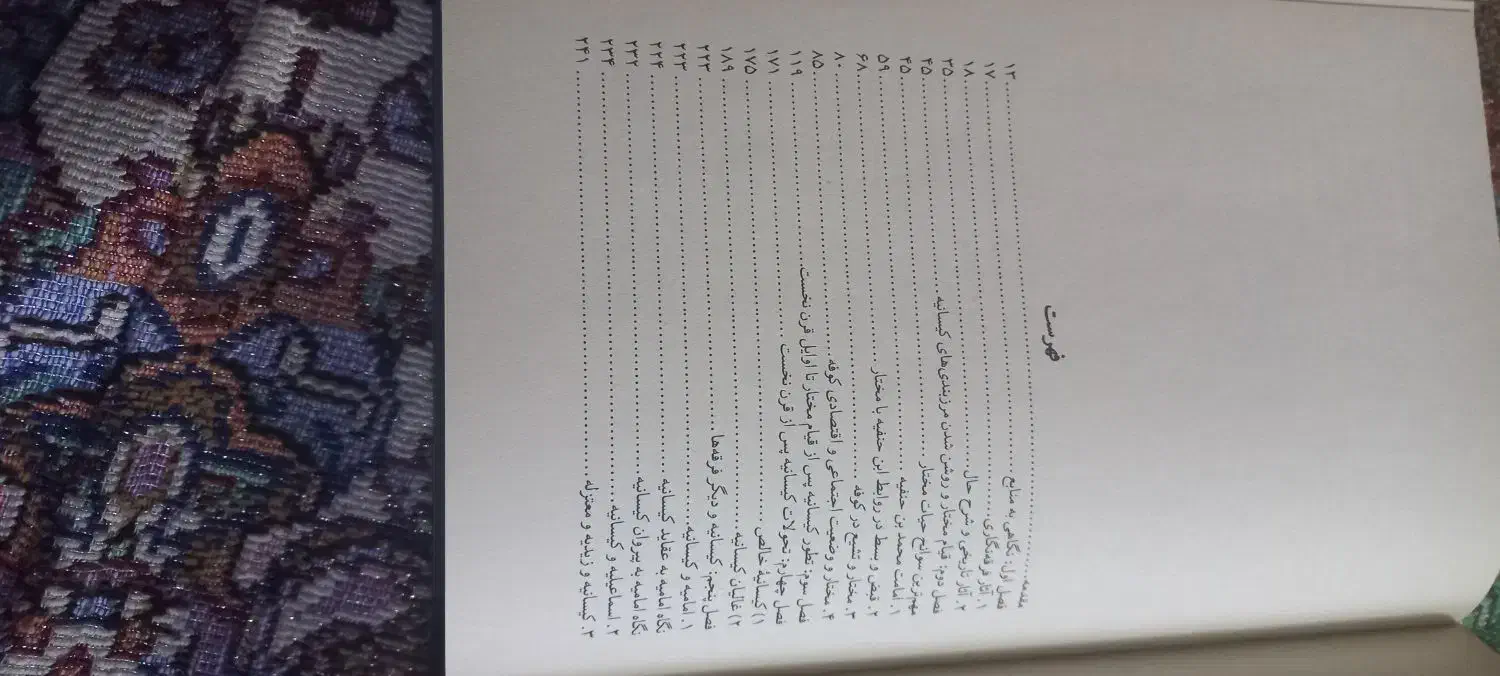 فهرست
مقدمه ........ ۱۳
فصل اول: نگاهی به منابع ........ ۱۷
۱. آثار فرقه‌نگاری ........ ۱۸
۲. آثار تاریخی و شرح حال ........ ۳۵
فصل دوم: قیام مختار و روشن شدن مرزبندی‌های کیسانیه ........ ۴۵
مهم‌ترین سوانح حیات مختار ........ ۴۵
۱. امامت محمد بن حنفیه ........ ۵۹
۲. قبض و بسط در روابط ابن حنفیه با مختار ........ ۶۸
۳. مختار و تشیع در کوفه ........ ۸۰
۴. مختار و وضعیت اجتماعی و اقتصادی کوفه ........ ۸۵
فصل سوم: تطور کیسانیه پس از قیام مختار تا اوایل قرن نخست ........ ۱۱۹
فصل چهارم: تحولات کیسانیه پس از قرن نخست ........ ۱۷۱
۱) کیسانیهٔ خالص ........ ۱۷۵
۲) غالیان کیسانیه ........ ۱۸۹
فصل پنجم: کیسانیه و دیگر فرقه‌ها ........ ۲۲۳
۱. امامیه و کیسانیه ........ ۲۲۳
نگاه امامیه به عقاید کیسانیه ........ ۲۲۴
نگاه امامیه به پیروان کیسانیه ........ ۲۳۲
۲. اسماعیلیه و کیسانیه ........ ۲۳۴
۳. کیسانیه و زیدیه و معتزله ........ ۲۴۱